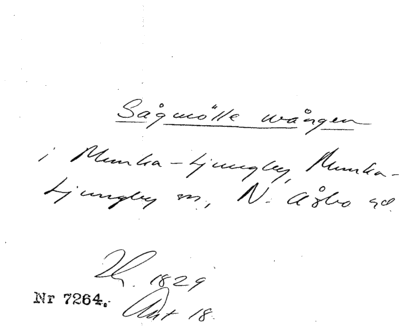 Sågmölle wången
i Munka-Ljungby, Munka-
Ljungby sn, N. Åsbo hd.
1829
Nr 7264. Akt 18.